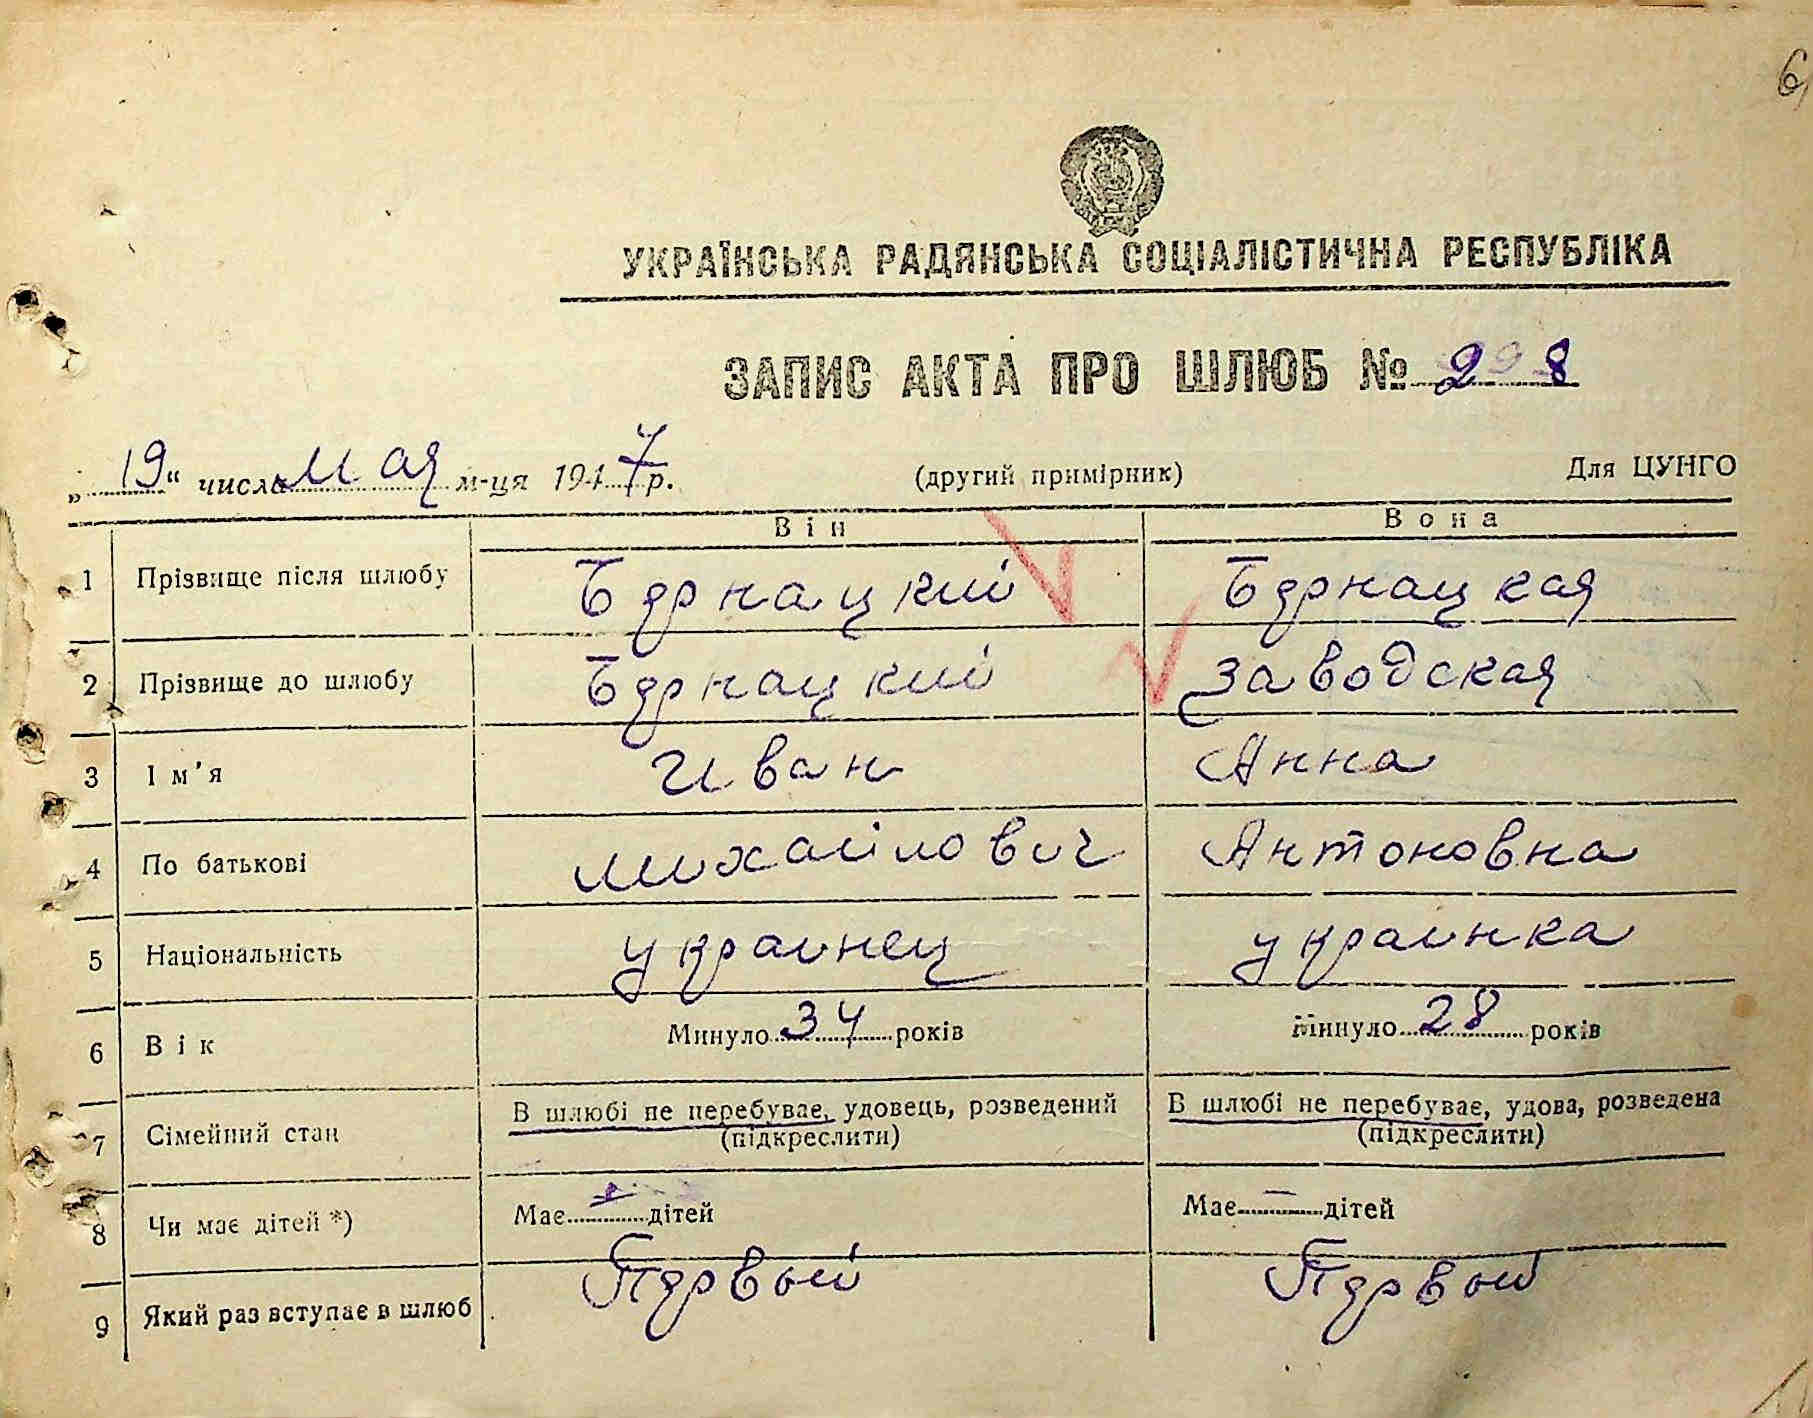 6
УКРАЇНСЬКА РАДЯНСЬКА СОЦІАЛІСТИЧНА РЕСПУБЛІКА
ЗАПИС АКТА ПРО ШЛЮБ № 298
„19“ числа Мая м-ця 1947 р. (другий примірник) Для ЦУНГО
Він Вона
1 Прізвище після шлюбу Бернацкий Бернацкая
2 Прізвище до шлюбу Бернацкий Заводская
3 Ім'я Иван Анна
4 По батькові Михайлович Антоновна
5 Національність украинец украинка
6 Вік Минуло 34 років Минуло 28 років
7 Сімейний стан В шлюбі не перебуває, удовець, розведений В шлюбі не перебуває, удова, розведена
(підкреслити) (підкреслити)
8 Чи має дітей *) Має — дітей Має — дітей
9 Який раз вступає в шлюб Первый Первый